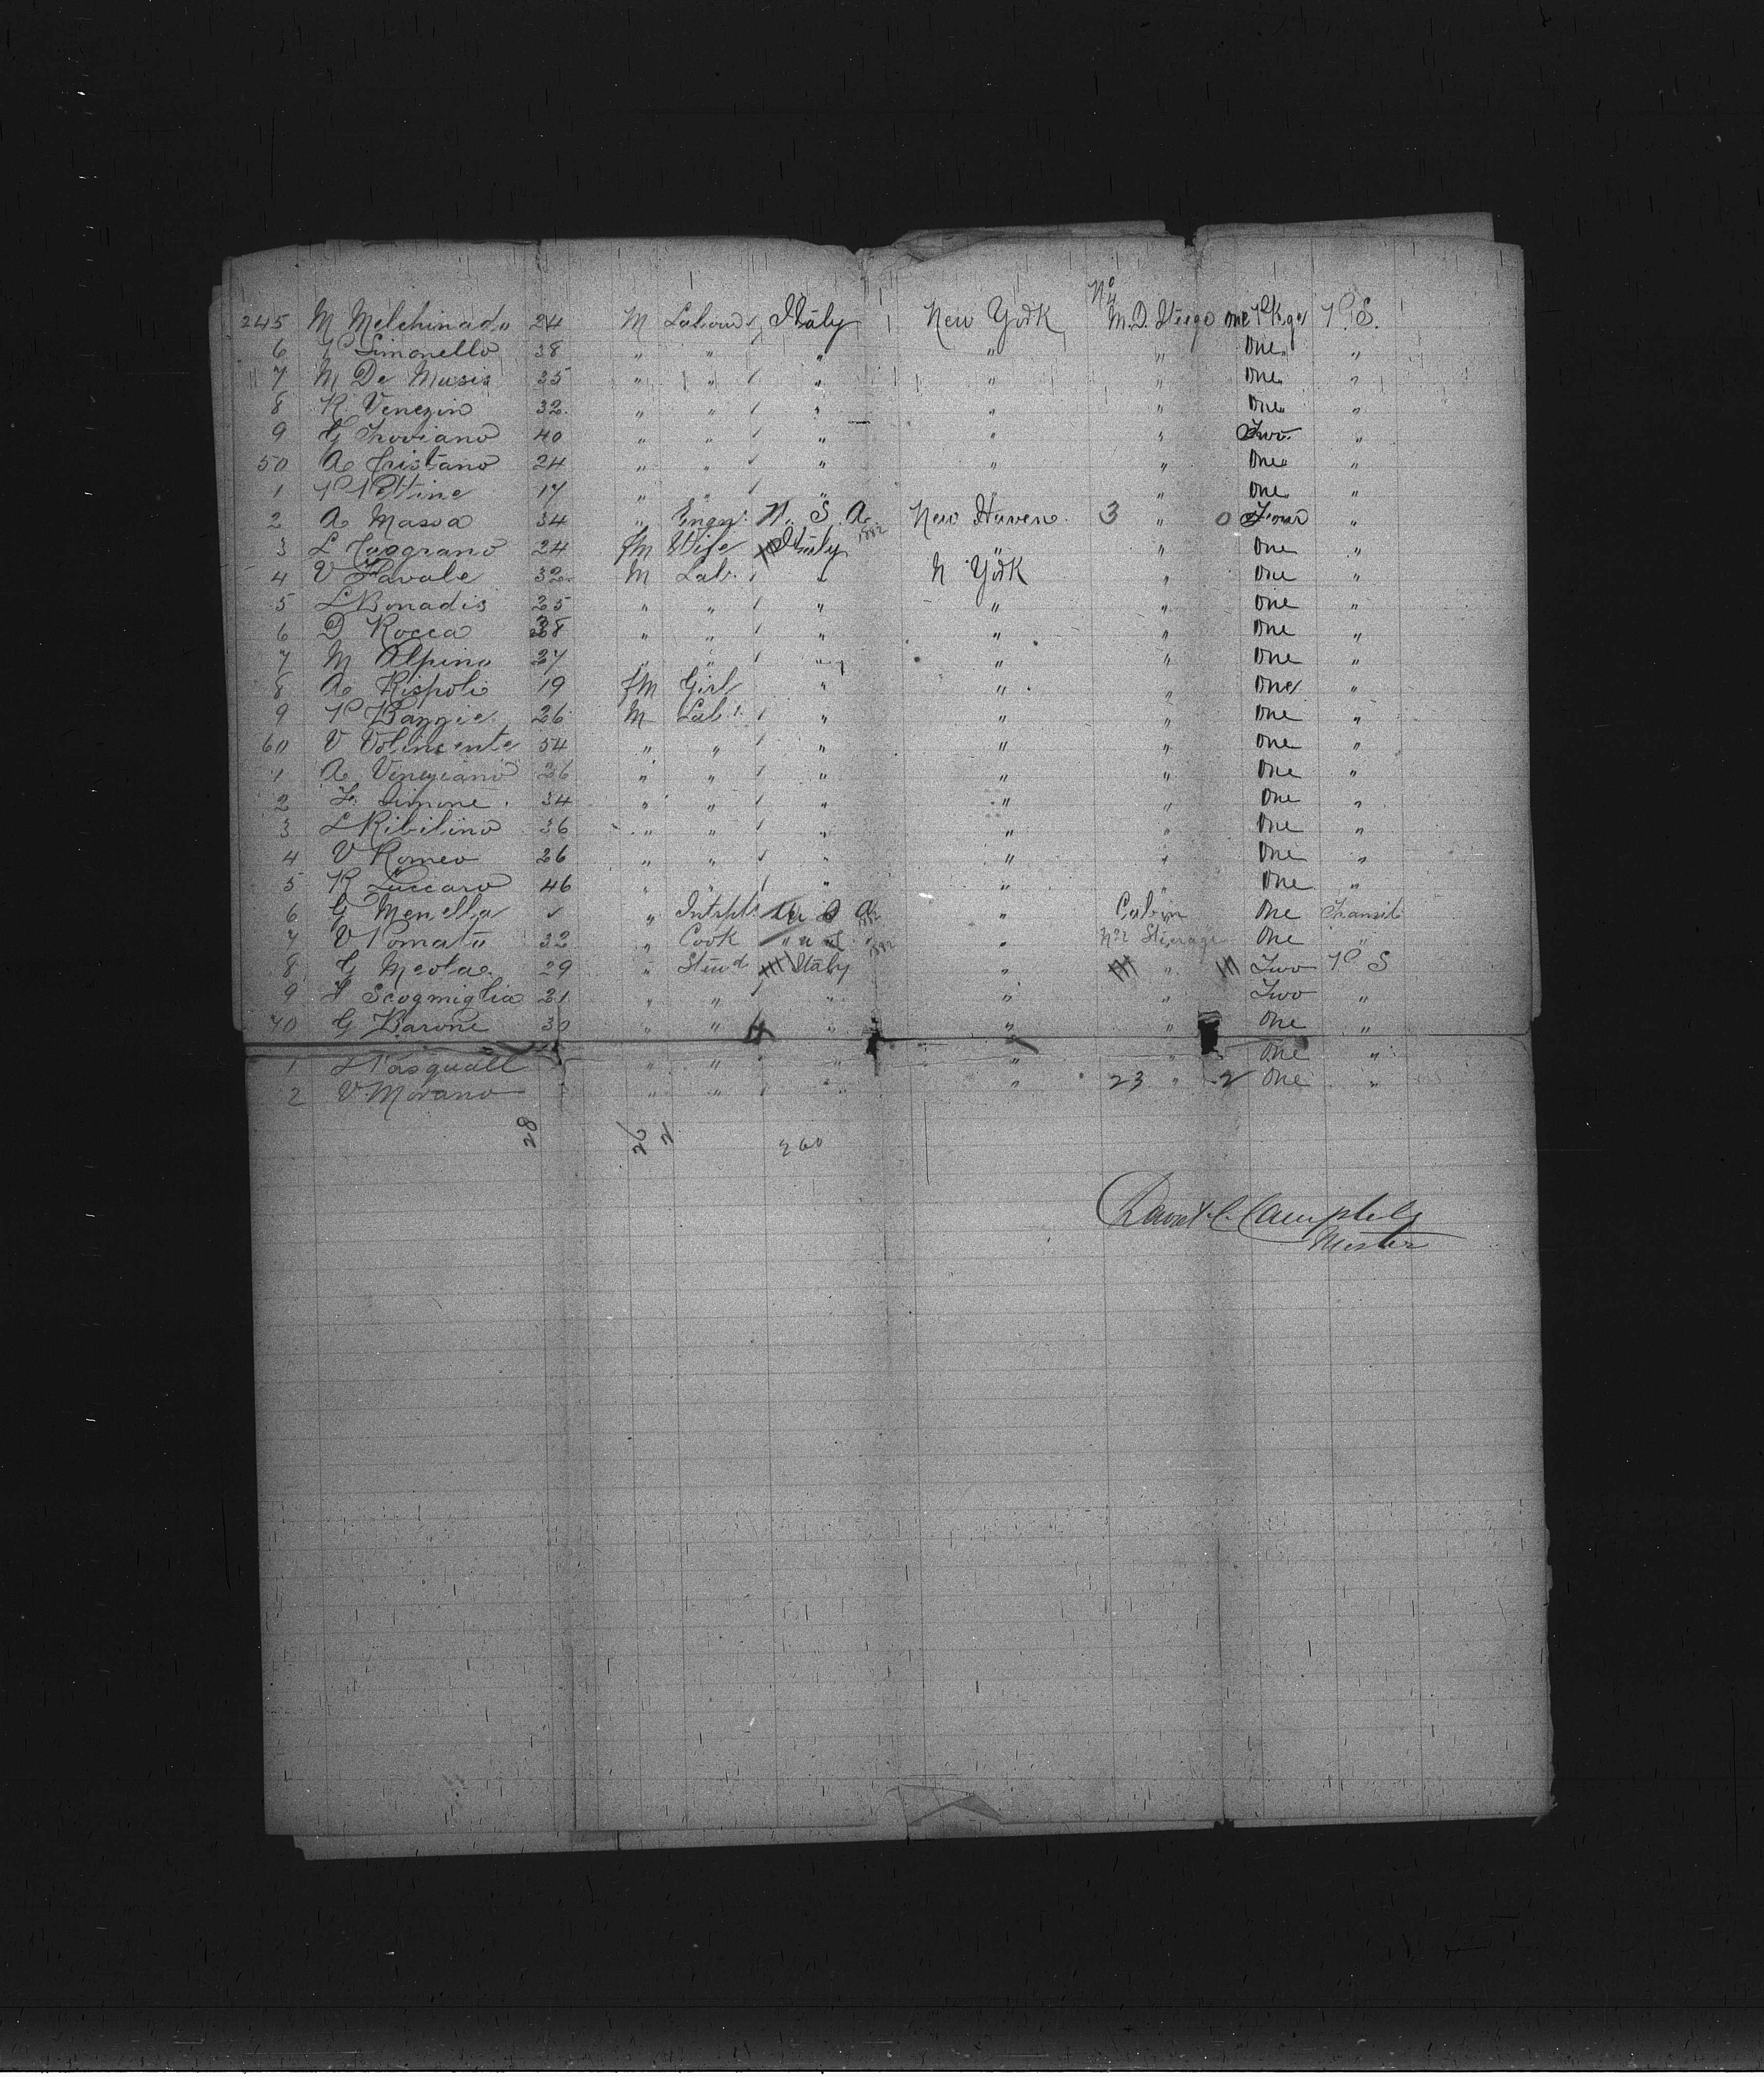 No 4
245 M Melchinado 24 M Labour Italy New York M.D. Steege one Pkge P.S.
6 Simonello 38 " " " " " One "
7 M De Musis 35 " " " " " One "
8 R Venezin 32 " " " " " One "
9 G Troviano 40 " " " " " Two "
50 A Tristano 24 " " " " " One "
1 P 17 " " " " One "
2 A Massa 34 " Engr. U. S. A. 1882 New Haven 3 " 0 Four "
3 L 24 fM Wife Italy " " One "
4 V Favale 32 M Lab. " N York " One "
5 L Bonadis 25 " " " " " One "
6 D Rocca 38 " " " " " One "
7 M Alpino 27 " " " " " One "
8 A Rispoli 19 fM Girl " " " One "
9 P Bazzie 26 M Lab. " " " One "
60 V Volincente 54 " " " " " One "
1 A Veneziano 26 " " " " " One "
2 F. Simone 34 " " " " " One "
3 L Ribilino 36 " " " " " One "
4 V Romeo 26 " " " " " One "
5 R Luccaro 46 " " " " " One "
6 G Menella " Intrpt. U S A 1882 " Cabin One Transit
7 V Pomato 32 " Cook " " " 1882 " No 2 Steerage One "
8 G Meola 29 " Stewd Italy " " Two P S
9 F Scogmiglia 21 " " " " " Two "
70 G Barone 30 " " 4 " " " One "
1 Pasquall " " " " " One "
2 V. Morano " " " " 23 " 2 One "
28 26 2 260
David C. Campbell
Master